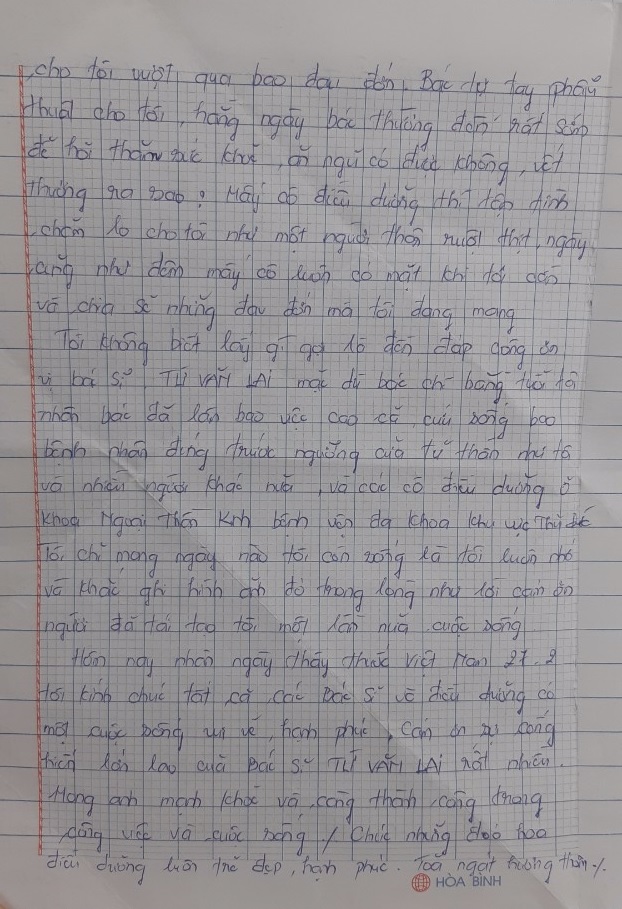 cho tôi vượt qua bao đau đớn. Bác tự tay phẫu
thuật cho tôi, hằng ngày bác thường đến rất sớm
để hỏi thăm sức khoẻ, ăn ngủ có được không, vết
thương ra sao? Mấy cô điều dưỡng thì tận tình
chăm lo cho tôi như một người thân ruột thịt, ngày
cũng như đêm mấy cô luôn có mặt khi tôi cần
và chia sẻ những đau đớn mà tôi đang mang
Tôi không biết lấy gì gọi là đền đáp công ơn
vị bác sĩ TỪ VĂN LAI mặc dù bác chỉ bằng tuổi tôi
nhưng bác đã làm bao việc cao cả, cứu sống bao
bệnh nhân đứng trước ngưỡng cửa tử thần như tôi
và nhiều người khác nữa, và các cô điều dưỡng ở
khoa Ngoại Thần Kinh bệnh viện đa khoa khu vực Thủ Đức
Tôi chỉ mong ngày nào tôi còn sống là tôi luôn nhớ
và khắc ghi hình ảnh đó trong lòng như lời cảm ơn
người đã tái tạo tôi một lần nữa cuộc sống
Hôm nay nhân ngày thầy thuốc Việt Nam 27.2
tôi kính chúc tất cả các bác sĩ và điều dưỡng có
một cuộc sống vui vẻ, hạnh phúc, cảm ơn sự cống
hiến lớn lao của bác sĩ TỪ VĂN LAI rất nhiều.
Mong anh mạnh khoẻ và càng thành công trong
công việc và cuộc sống / Chúc những đoá hoa
điều dưỡng luôn trẻ đẹp, hạnh phúc. Toả ngát hương thơm./.
HÒA BÌNH